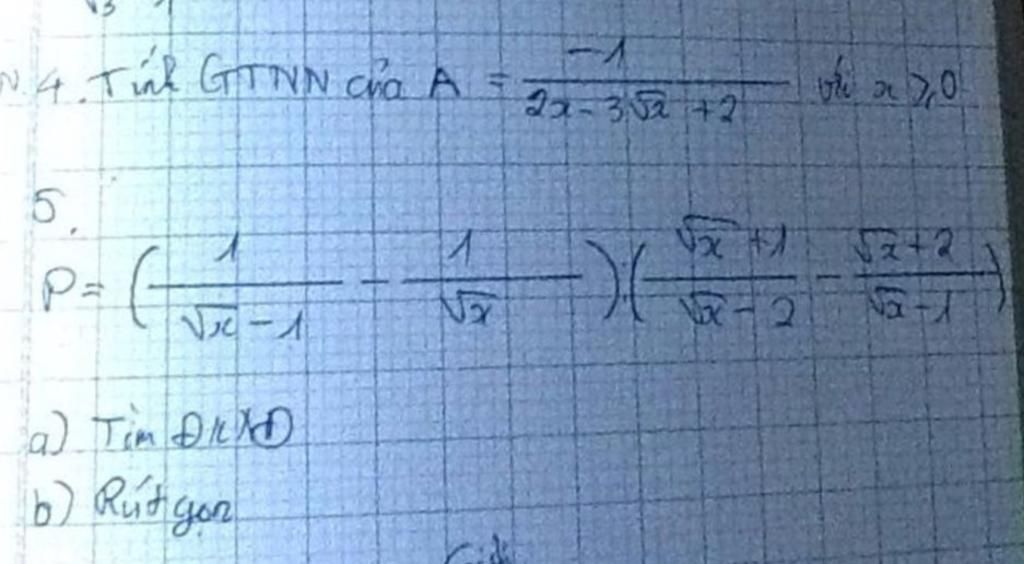 4. Tính GTNN của A = -1 / (2x - 3√x + 2) với x ≥ 0
5.
P = (1 / (√x - 1) - 1 / √x) : ((√x + 1) / (√x - 2) - (√x + 2) / (√x - 1))
a) Tìm ĐKXĐ
b) Rút gọn